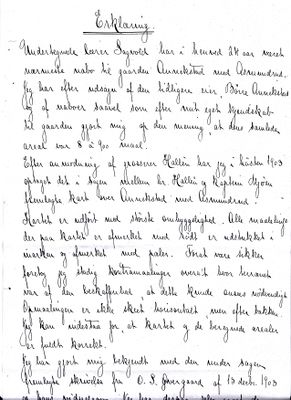 Erklæring.
Undertegnede lærer Sagvold har i henved 24 aar været
nærmeste nabo til gaarden Annekstad med Asmundrud.
Jeg har efter udsagn af den tidligere eier, Börre Annekstad
og af naboer saavel som efter mit eget kjendskab
til gaarden gjort mig op den mening, at dens samlede
areal var 8 à 900 maal.
Efter anmodning af grosserer Hallén har jeg i hösten 1903
optaget det i sagen mellem hr. Hallén og kaptein Hjorn
fremlagte kart over Annekstad med Asmundrud.
Kartet er udfört med störste omhyggelighed. Alle maalelinje
der paa kartet er afmerket med rödt er udstukket i
marken og afmerket med pæler. For at være sikker
foretog jeg stadig kontramaalinger overalt hvor terrænet
var af den beskaffenhed, at dette kunde ansees nödvendigt
Opmaalingen er ikke skeet horisontalt, men efter bakken.
Jeg kan indestaa for, at kartet og de beregnede arealer
er fuldt korrekt.
Jeg har gjort mig bekjendt med den under sagen
fremlagte skrivelse fra O. S. Overgaard af 13 decbr. 1903
og hans